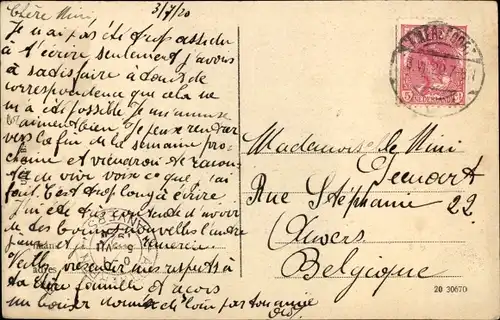 Chère Mini,
3/7/20
Je n'ai pas été trop assidu
à t'écrire seulement j'avais
à satisfaire à tant de
correspondance que cela ne
m'a été possible. Je m'amuse
vraiment bien. Je pense rentrer
vers la fin de la semaine pro-
chaine et viendrai te racon-
ter de vive voix ce que j'ai
fait. C'est trop long à écrire.
J'ai été très contente d'avoir
de tes bonnes nouvelles l'autre
jour et t'en remercie.
Veille présenter mes respects à
ta chère famille et reçois
un baiser de loin par ton amie
Mademoiselle Mini
Rue Stéphanie 22
Anvers
Belgique
20 30670